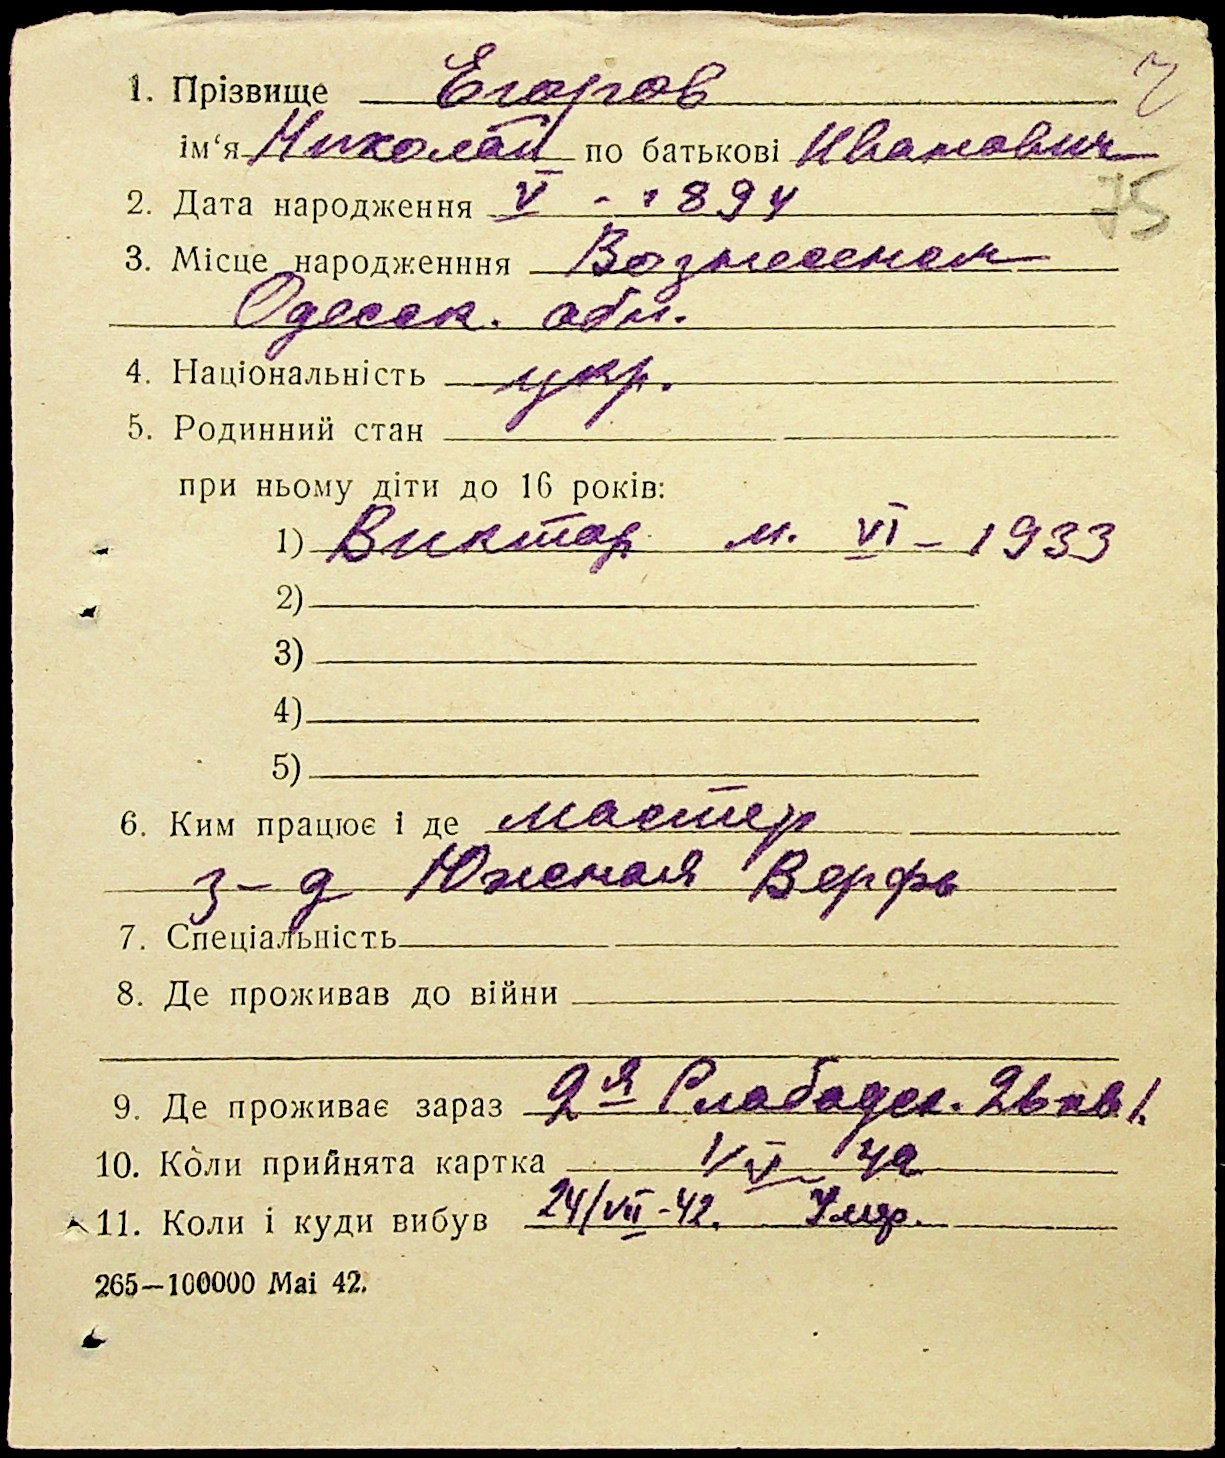 1. Прізвище Егоров
ім‘я Николай по батькові Иванович
75
2. Дата народження V - 1894
3. Місце народженння Вознесенск
Одесск. обл.
4. Національність укр.
5. Родинний стан
при ньому діти до 16 років:
1) Виктор м. VI - 1933
2)
3)
4)
5)
6. Ким працює і де мастер
з-д Южная Верфь
7. Спеціальність
8. Де проживав до війни
9. Де проживає зараз 2я Слободск.
10. Коли прийнята картка
11. Коли і куди вибув 24/VII-42. Умер.
265—100000 Mai 42.